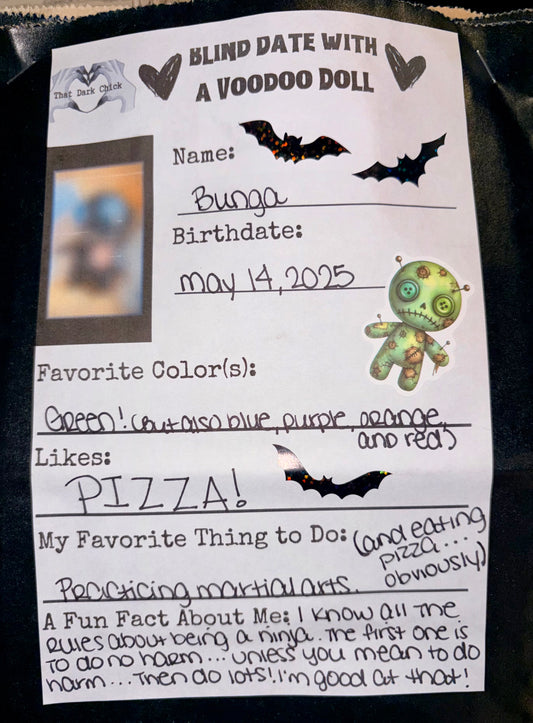 BLIND DATE WITH
A VOODOO DOLL
That Dark Chick
Name:
Bunga
Birthdate:
may 14, 2025
Favorite Color(s):
Green! (But also blue, purple, orange,
and red)
Likes:
PIZZA!
My Favorite Thing to Do: (and eating
pizza...
obviously)
Practicing martial arts.
A Fun Fact About Me: I know all the
rules about being a ninja. The first one is
to do no harm... unless you mean to do
harm... Then do lots! I'm good at that!